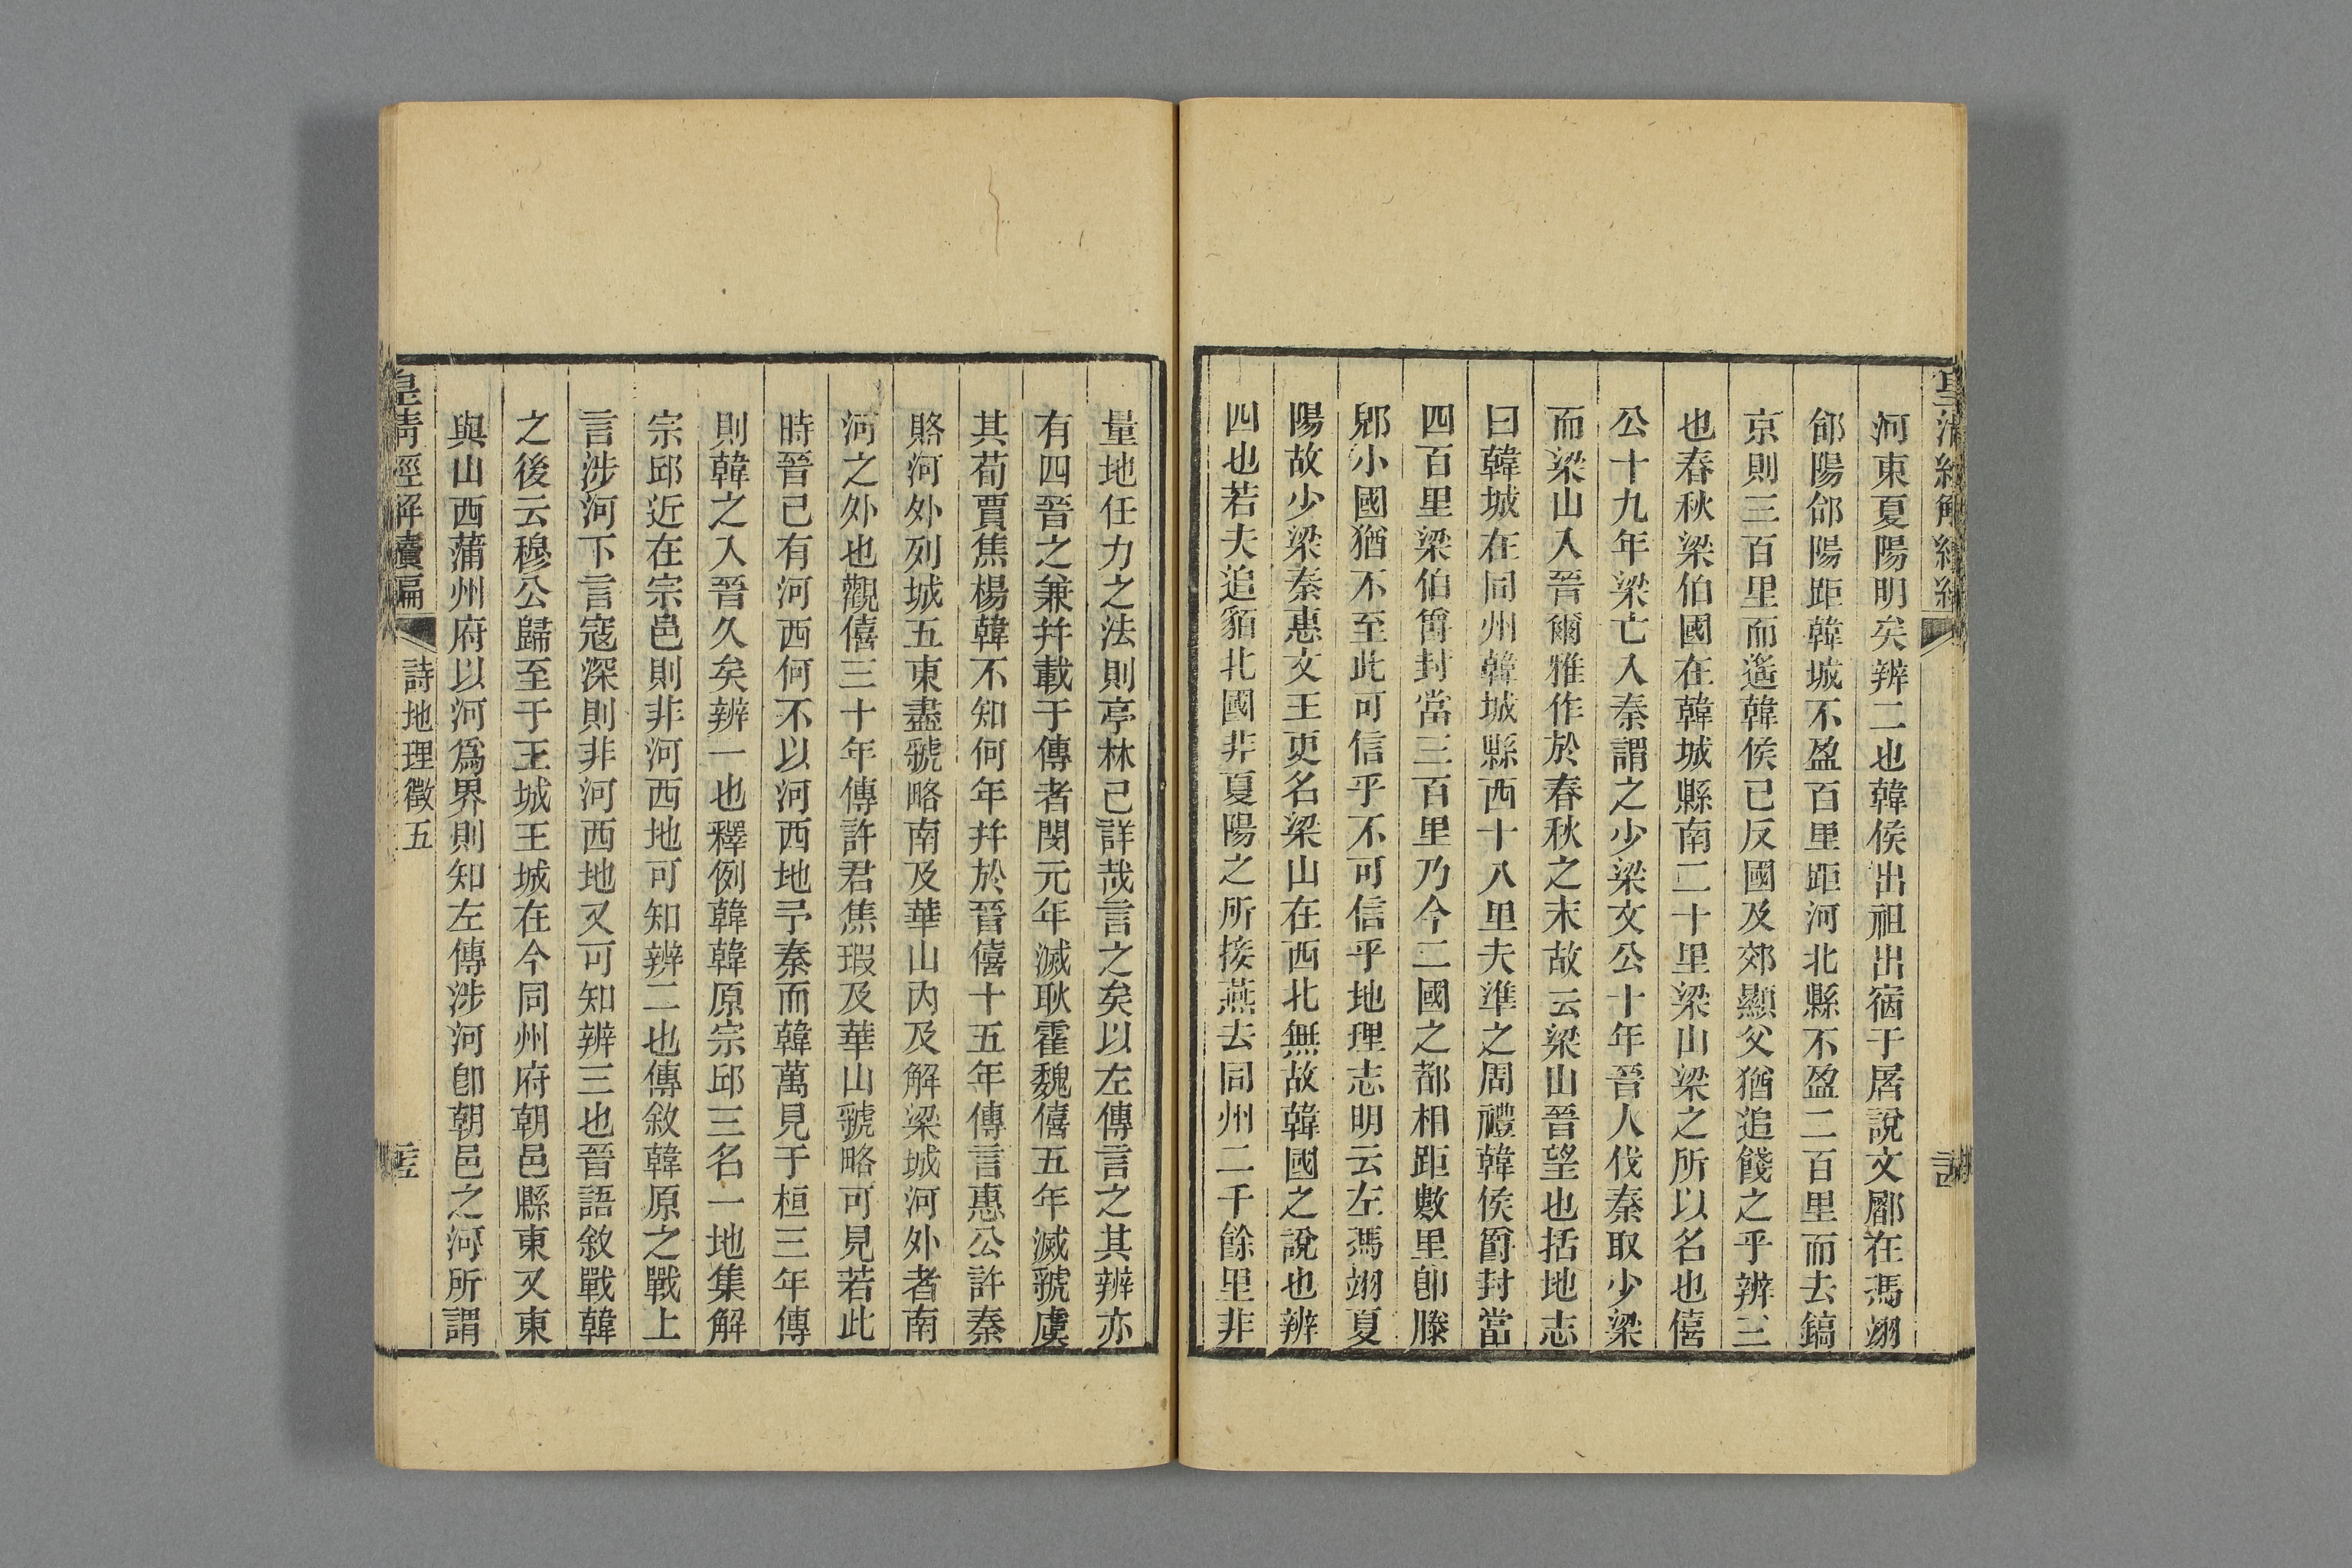 河東夏陽明矣辨二也韓侯出祖出宿于屠說文鄜在馮翊
郃陽郃陽距韓城不盈百里距河北縣不盈二百里而去鎬
京則三百里而遙韓侯已反國及郊顯父猶追餞之乎辨三
也春秋梁伯國在韓城縣南二十里梁山梁之所以名也僖
公十九年梁亡入秦謂之少梁文公十年晉人伐秦取少梁
而梁山入晉爾雅作於春秋之末故云梁山晉望也括地志
曰韓城在同州韓城縣西十八里夫準之周禮韓侯爵封當
四百里梁伯爵封當三百里乃今二國之都相距數里卽滕
郳小國猶不至此可信乎不可信乎地理志明云左馮翊夏
陽故少梁秦惠文王更名梁山在西北無故韓國之說也辨
四也若夫追貊北國非夏陽之所接燕去同州二千餘里非
量地任力之法則亭林已詳哉言之矣以左傳言之其辨亦
有四晉之兼并載于傳者閔元年滅耿霍魏僖五年滅虢虞
其荀賈焦楊韓不知何年并於晉僖十五年傳言惠公許秦
賂河外列城五東盡虢略南及華山內及解梁城河外者南
河之外也觀僖三十年傳許君焦瑕及華山虢略可見若此
時晉已有河西何不以河西地予秦而韓萬見于桓三年傳
則韓之入晉久矣辨一也釋例韓韓原宗邱三名一地集解
宗邱近在宗邑則非河西地可知辨二也傳敘韓原之戰上
言涉河下言寇深則非河西地又可知辨三也晉語敘戰韓
之後云穆公歸至于王城王城在今同州府朝邑縣東又東
與山西蒲州府以河爲界則知左傳涉河卽朝邑之河所謂
皇清經解續編
詩地理徵五